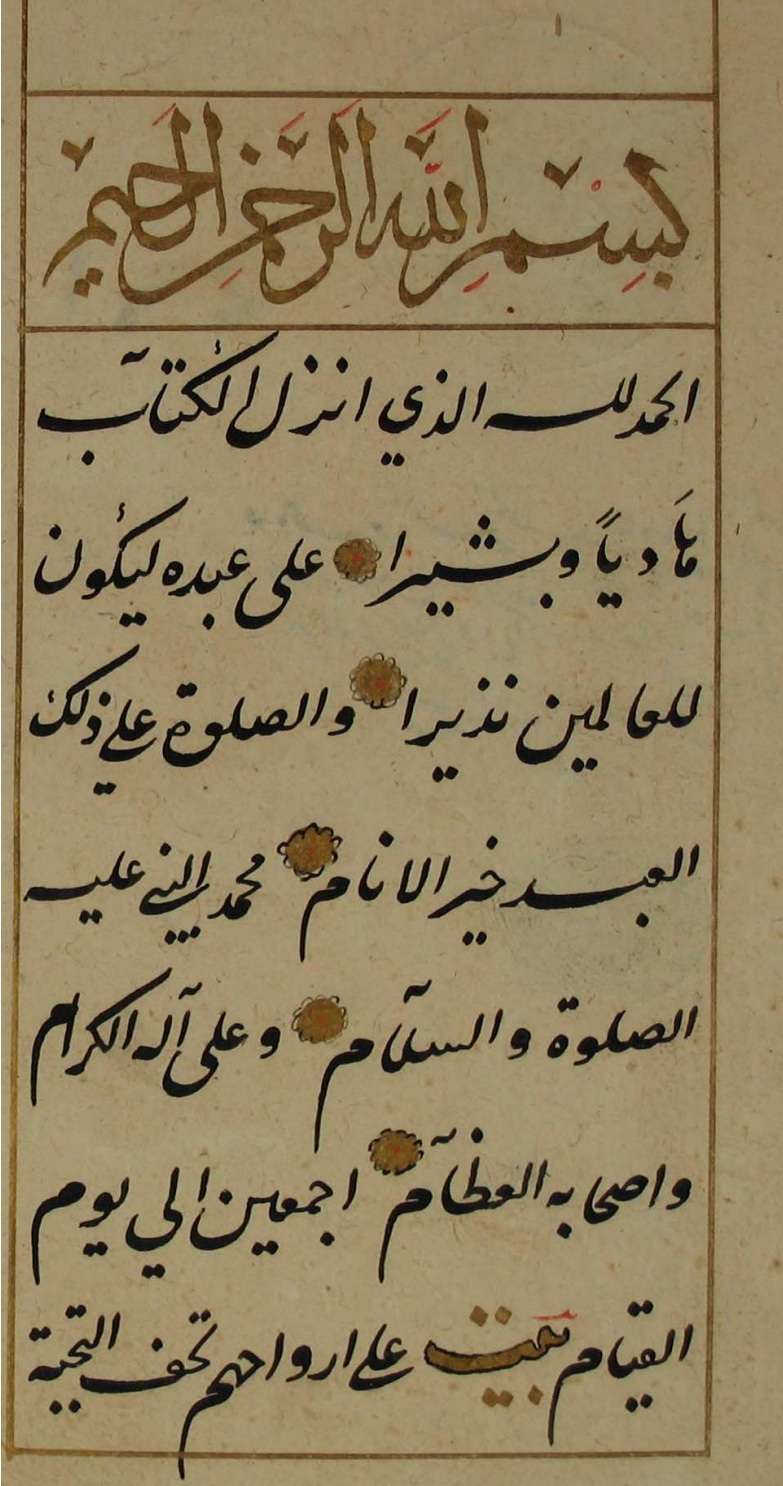 بسم الله الرحمن الرحيم
الحمد لله الذي انزل الكتاب
هَادياً وبشيرا على عبده ليكون
للعالمين نذيرا والصلوة على ذلك
العبد خير الانام محمد النبي عليه
الصلوة والسلام وعلى آله الكرام
واصحابه العظام اجمعين الي يوم
القيام بيت على ارواحهم تحف التحية